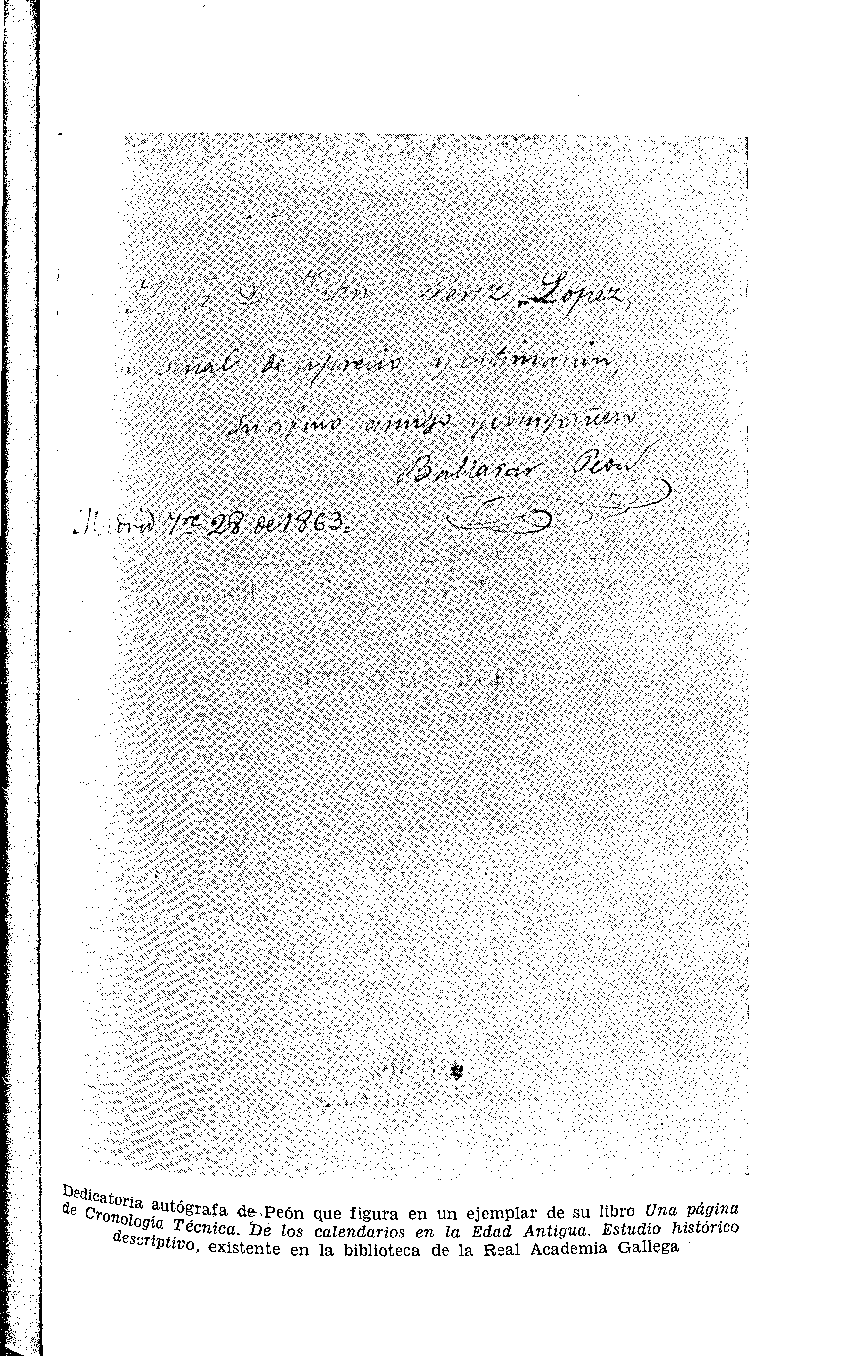 Lopez,
señal de aprecio y estimación,
Su afmo amigo y compañero
Baltasar Peón
Madrid 7re 28 de 1863.
Dedicatoria autógrafa de Peón que figura en un ejemplar de su libro Una página
de Cronología Técnica. De los calendarios en la Edad Antigua. Estudio histórico
descriptivo, existente en la biblioteca de la Real Academia Gallega